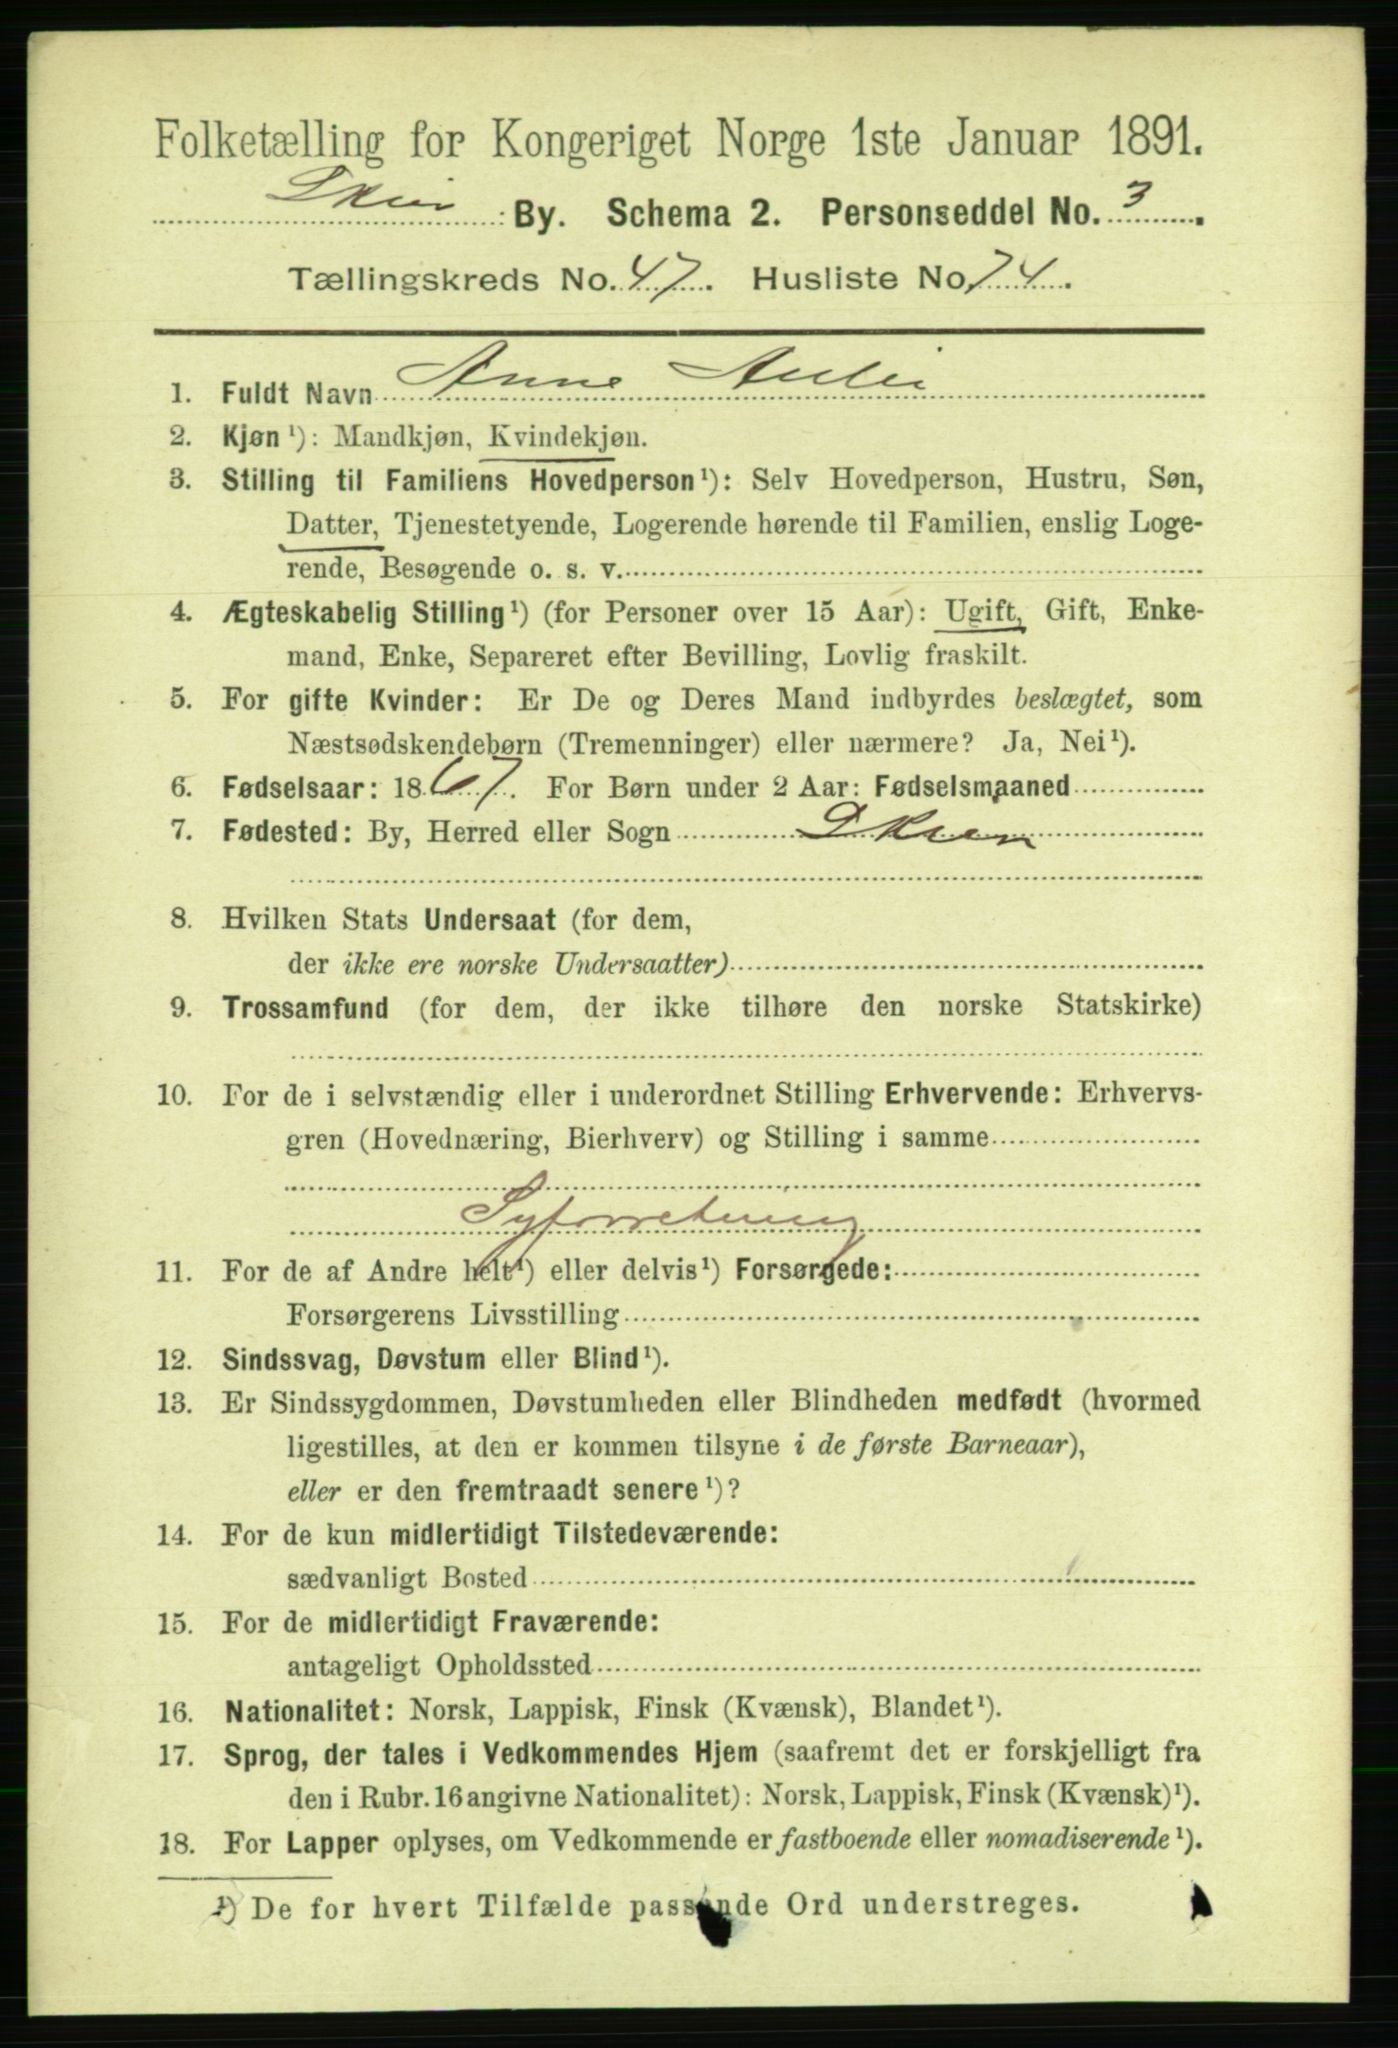 Folketælling for Kongeriget Norge 1ste Januar 1891.
Skien By. Schema 2. Personseddel No. 3.
Tællingskreds No. 47. Husliste No. 74.
1. Fuldt Navn Anne
2. Kjøn ¹): Mandkjøn, Kvindekjøn.
3. Stilling til Familiens Hovedperson ¹): Selv Hovedperson, Hustru, Søn,
Datter, Tjenestetyende, Logerende hørende til Familien, enslig Loge-
rende, Besøgende o. s. v.
4. Ægteskabelig Stilling ¹) (for Personer over 15 Aar): Ugift, Gift, Enke-
mand, Enke, Separeret efter Bevilling, Lovlig fraskilt.
5. For gifte Kvinder: Er De og Deres Mand indbyrdes beslægtet, som
Næstsødskendebørn (Tremenninger) eller nærmere? Ja, Nei ¹).
6. Fødselsaar: 1867. For Børn under 2 Aar: Fødselsmaaned
7. Fødested: By, Herred eller Sogn Skien
8. Hvilken Stats Undersaat (for dem,
der ikke ere norske Undersaatter)
9. Trossamfund (for dem, der ikke tilhøre den norske Statskirke)
10. For de i selvstændig eller i underordnet Stilling Erhvervende: Erhvervs-
gren (Hovednæring, Bierhverv) og Stilling i samme
Syforretning
11. For de af Andre helt ¹) eller delvis ¹) Forsørgede:
Forsørgerens Livsstilling
12. Sindssvag, Døvstum eller Blind ¹).
13. Er Sindssygdommen, Døvstumheden eller Blindheden medfødt (hvormed
ligestilles, at den er kommen tilsyne i de første Barneaar),
eller er den fremtraadt senere ¹)?
14. For de kun midlertidigt Tilstedeværende:
sædvanligt Bosted
15. For de midlertidigt Fraværende:
antageligt Opholdssted
16. Nationalitet: Norsk, Lappisk, Finsk (Kvænsk), Blandet ¹).
17. Sprog, der tales i Vedkommendes Hjem (saafremt det er forskjelligt fra
den i Rubr. 16 angivne Nationalitet): Norsk, Lappisk, Finsk (Kvænsk) ¹).
18. For Lapper oplyses, om Vedkommende er fastboende eller nomadiserende ¹).
¹) De for hvert Tilfælde passende Ord understreges.